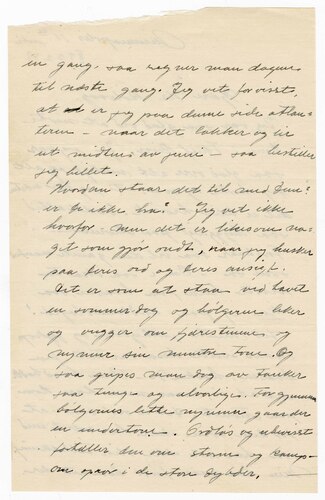 en gang, saa regner man dagene
til næste gang. Jeg vet forvisst,
at er jeg paa denne side atlan-
teren – naar det lakker og lir
ut midten av juni – saa bestiller
jeg billet.
Hvordan staar det til med Dem?
er De ikke bra? – Jeg vet ikke
hvorfor – men det er likesom no-
get som gjør ondt, naar jeg husker
paa Deres ord og Deres ansigt.
Det er som at staa ved havet
en sommerdag og bølgerne leker
og vugger om fjærestenene og
nynner sin muntre tone. Og
saa gripes man dog av tanker
saa tunge og alvorlige. For gjennem
bølgernes lette nynnen gaar der
en undertone. Ordløs og ubevisst
fortæller den om storm og kamp –
om oprør i de store dybder.